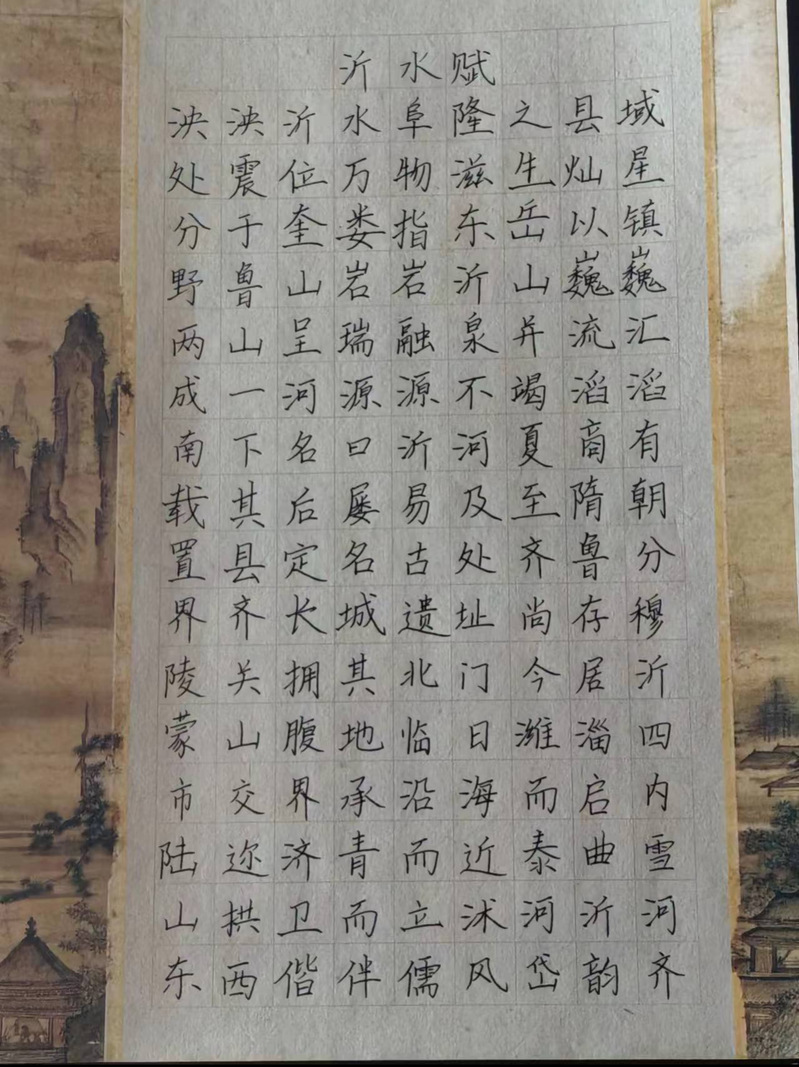 沂水赋
泱泱沂水阜隆之县域
处震位万物滋生灿星
分于奎娄指东岳以镇
野鲁山岩岩沂山巍巍
两山呈瑞融泉并流汇
成一河源源不竭滔滔
南下名曰沂河夏商有
载其后屡易及至隋朝
置县定名古处齐鲁分
界齐长城遗址尚存穆
陵关拥其北门今居沂
蒙山腹地临日潍淄四
市交界承沿海而启内
陆迩济青而近泰曲雪
山拱卫而立沭河沂河
东西偕伴儒风岱韵齐